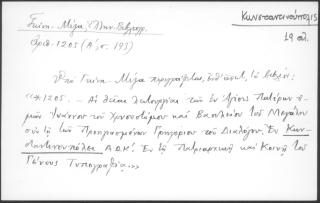 Γκίνη - Μέξα, Ἑλλην. Βιβλιογρ.
ἀριθ. 1205 (Α', σ. 193)
Κωνσταντινούπολις
19 αι.
Γκίνη - Μέξα περιγράφεται, ὑπ' ἀριθ., τὸ βιβλίο:
«*1205. - Αἱ θεῖαι λειτουργίαι τῶν ἐν Ἁγίοις Πατέρων ἡ-
μῶν Ἰωάννου τοῦ Χρυσοστόμου καὶ Βασιλείου τοῦ Μεγάλου
σὺν τῇ τῶν Προηγιασμένων Γρηγορίου τοῦ Διαλόγου. Ἐν Κων-
σταντινουπόλει ΑΩΚ'. Ἐν τῇ Πατριαρχικῇ καὶ Κοινῇ τοῦ
Γένους Τυπογραφίᾳ...»